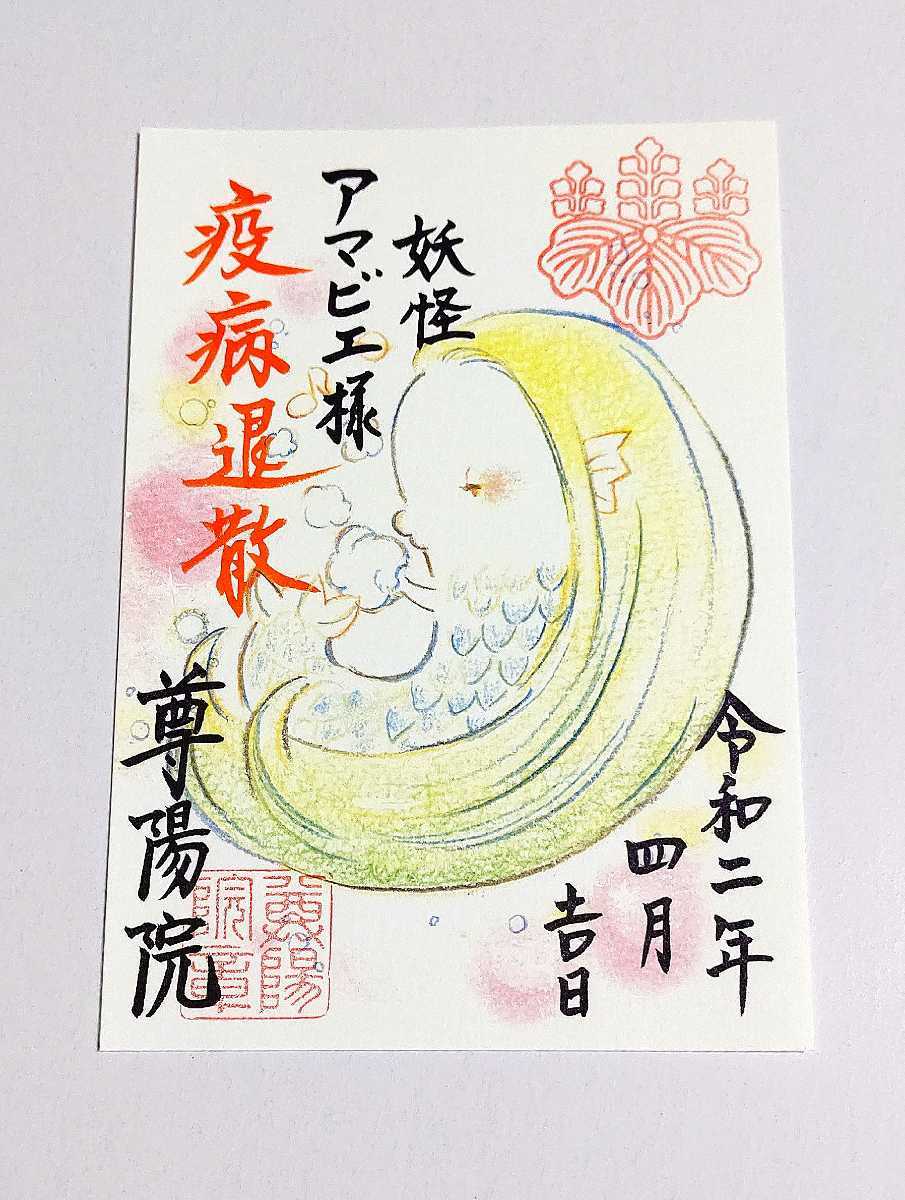 妖怪
アマビエ様
疫病退散
令和二年
四月
吉日
尊陽院
尊陽
院章